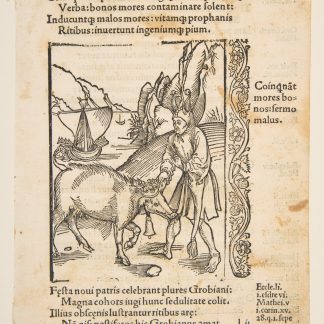 Verba: bonos mores contaminare solent:
Inducuntq; malos mores: vitamq; prophanis
Ritibus: inuertunt ingeniumq; pium.
Coinqnāt
mores bo-
nos: sermo
malus.
Festa noui patris celebrant plures Grobiani:
Magna cohors iugi hunc sedulitate colit.
Illius obscenis lustrantur ritibus aræ:
Grobianus amat
Eccle.li.
1.esdre vi.
Mathei.v
1.corin.xv.
28.q.1.sepe